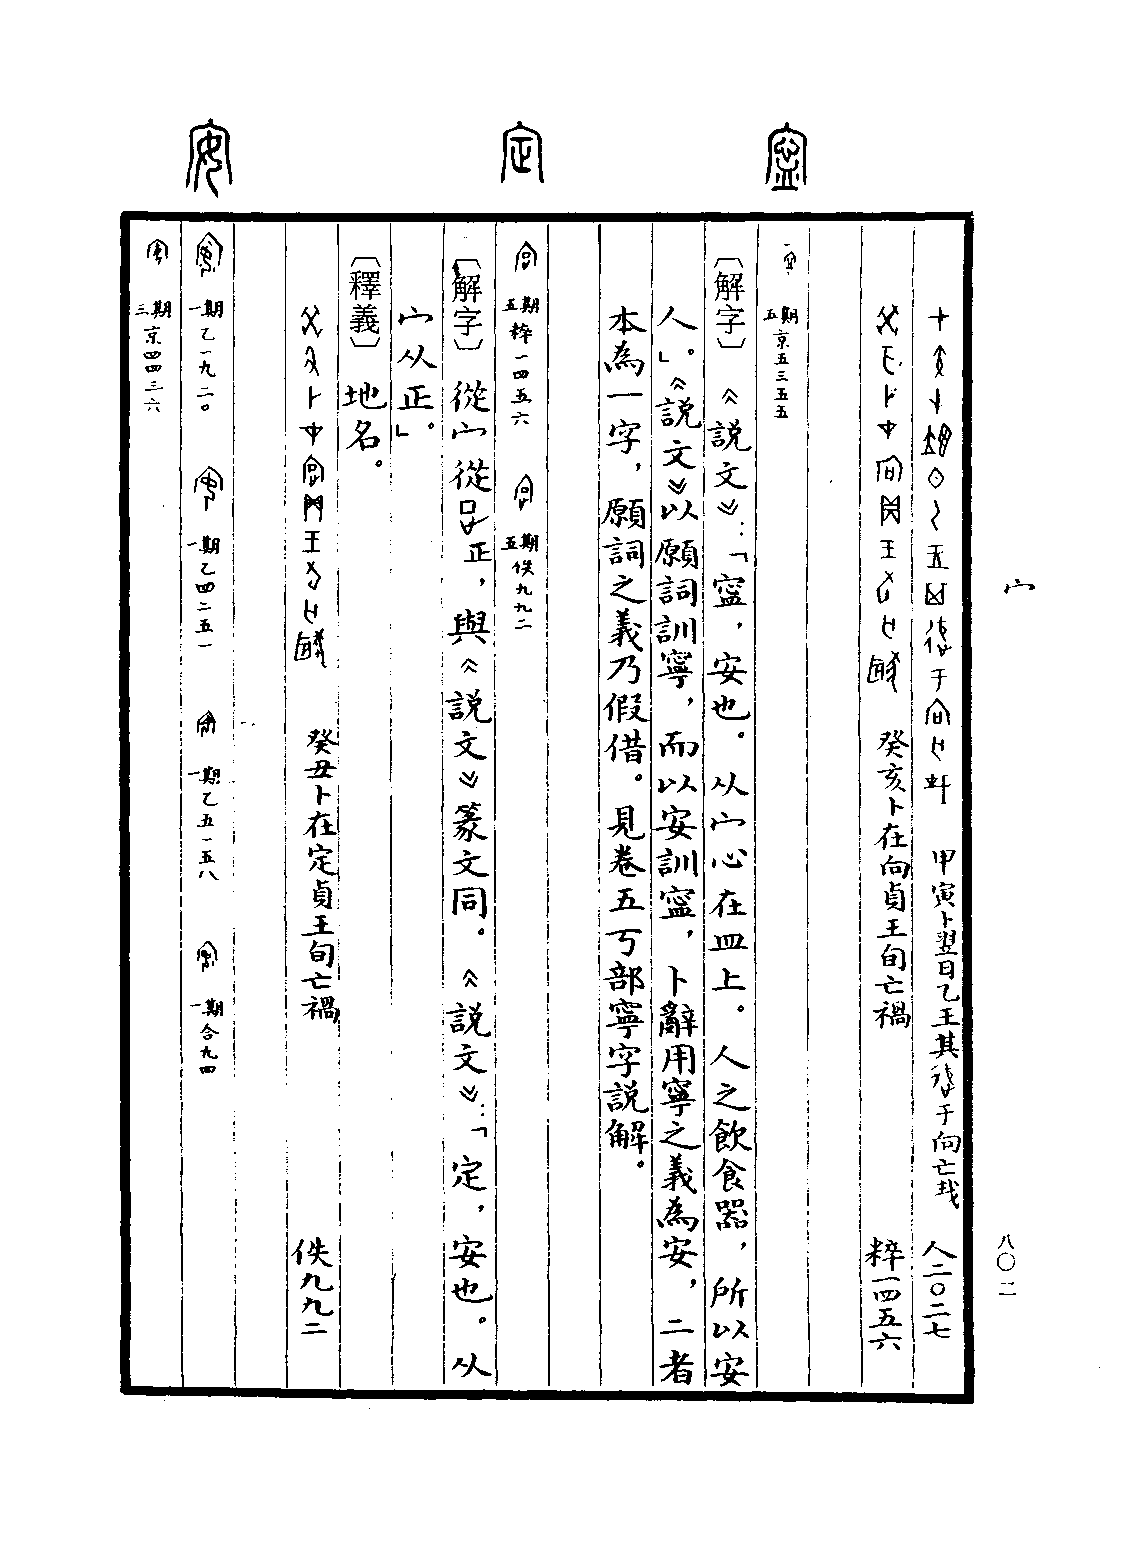 宀
八〇二
甲寅卜翌日乙王其于向亡𢦔 人二〇二七
癸亥卜在向貞王旬亡禍 粹一四五六
寍
五期 京五三五五
〔解字〕《説文》：「寍，安也。从宀心在皿上。人之飲食器，所以安
人。」《説文》以願詞訓寧，而以安訓寍，卜辭用寧之義為安，二者
本為一字，願詞之義乃假借。見卷五丂部寧字説解。
定
五期 粹一四五六 五期 佚九九二
〔解字〕從宀從正，與《説文》篆文同。《説文》：「定，安也。从
宀从正。」
〔釋義〕地名。
癸丑卜在定貞王旬亡禍 佚九九二
安
一期 乙一九二〇 一期 乙四二五一 一期 乙五一五八 一期 合九四
三期 京四四三六